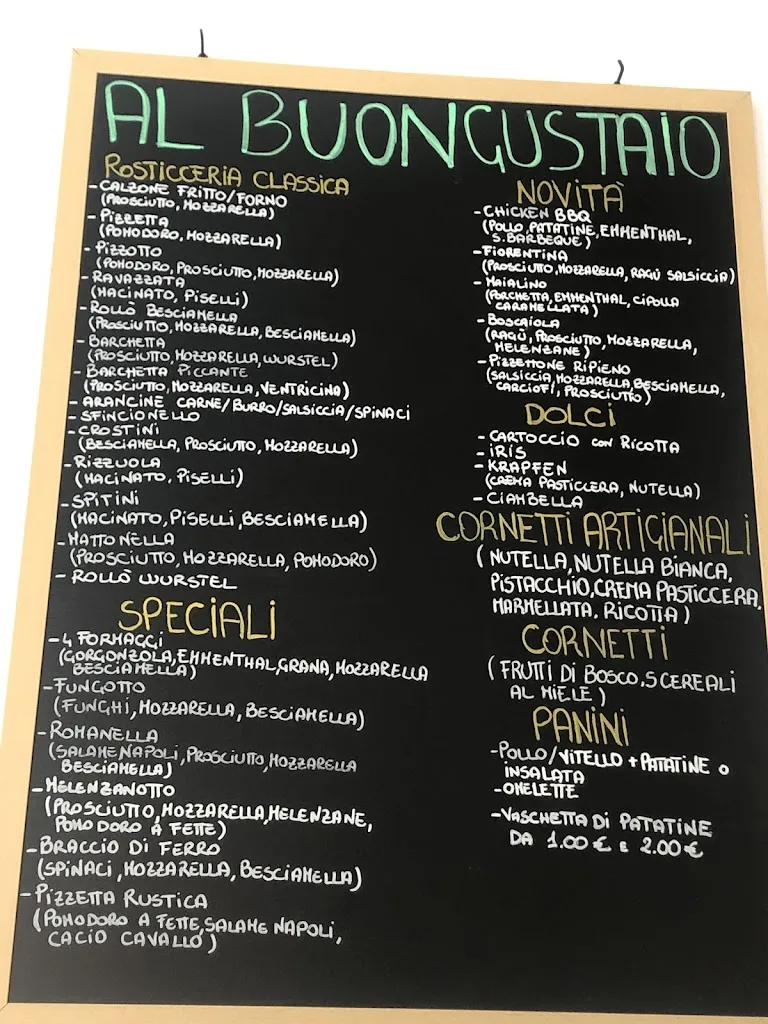 AL BUONGUSTAIO
ROSTICCERIA CLASSICA
- CALZONE FRITTO/FORNO
(PROSCIUTTO, MOZZARELLA)
- PIZZETTA
(POMODORO, MOZZARELLA)
- PIZZOTTO
(POMODORO, PROSCIUTTO, MOZZARELLA)
- RAVAZZATA
(MACINATO, PISELLI)
- ROLLÒ BESCIAMELLA
(PROSCIUTTO, MOZZARELLA, BESCIAMELLA)
- BARCHETTA
(PROSCIUTTO, MOZZARELLA, WURSTEL)
- BARCHETTA PICCANTE
(PROSCIUTTO, MOZZARELLA, VENTRICINA)
- ARANCINE CARNE/BURRO/SALSICCIA/SPINACI
- SFINCIONELLO
- CROSTINI
(BESCIAMELLA, PROSCIUTTO, MOZZARELLA)
- RIZZUOLA
(MACINATO, PISELLI)
- SPITINI
(MACINATO, PISELLI, BESCIAMELLA)
- MATTONELLA
(PROSCIUTTO, MOZZARELLA, POMODORO)
- ROLLÒ WURSTEL
SPECIALI
- 4 FORMAGGI
(GORGONZOLA, EMMENTHAL, GRANA, MOZZARELLA
BESCIAMELLA)
- FUNGOTTO
(FUNGHI, MOZZARELLA, BESCIAMELLA)
- ROMANELLA
(SALAME NAPOLI, PROSCIUTTO, MOZZARELLA
BESCIAMELLA)
- MELENZANOTTO
(PROSCIUTTO, MOZZARELLA, MELENZANE,
POMODORO A FETTE)
- BRACCIO DI FERRO
(SPINACI, MOZZARELLA, BESCIAMELLA)
- PIZZETTA RUSTICA
(POMODORO A FETTE, SALAME NAPOLI,
CACIO CAVALLO)
NOVITÀ
- CHICKEN BBQ
(POLLO, PATATINE, EMMENTHAL,
S. BARBEQUE)
- FIORENTINA
(PROSCIUTTO, MOZZARELLA, RAGÙ SALSICCIA)
- MAIALINO
(PORCHETTA, EMMENTHAL, CIPOLLA
CARAMELLATA)
- BOSCAIOLA
(RAGÙ, PROSCIUTTO, MOZZARELLA,
MELENZANE)
- PIZZETTONE RIPIENO
(SALSICCIA, MOZZARELLA, BESCIAMELLA,
CARCIOFI, PROSCIUTTO)
DOLCI
- CARTOCCIO con RICOTTA
- IRIS
- KRAPFEN
(CREMA PASTICCERA, NUTELLA)
- CIAMBELLA
CORNETTI ARTIGIANALI
(NUTELLA, NUTELLA BIANCA,
PISTACCHIO, CREMA PASTICCERA,
MARMELLATA, RICOTTA)
CORNETTI
(FRUTTI DI BOSCO, 5 CEREALI
AL MIELE)
PANINI
- POLLO/VITELLO + PATATINE O
INSALATA
- OMELETTE
- VASCHETTA DI PATATINE
DA 1.00 € E 2.00 €